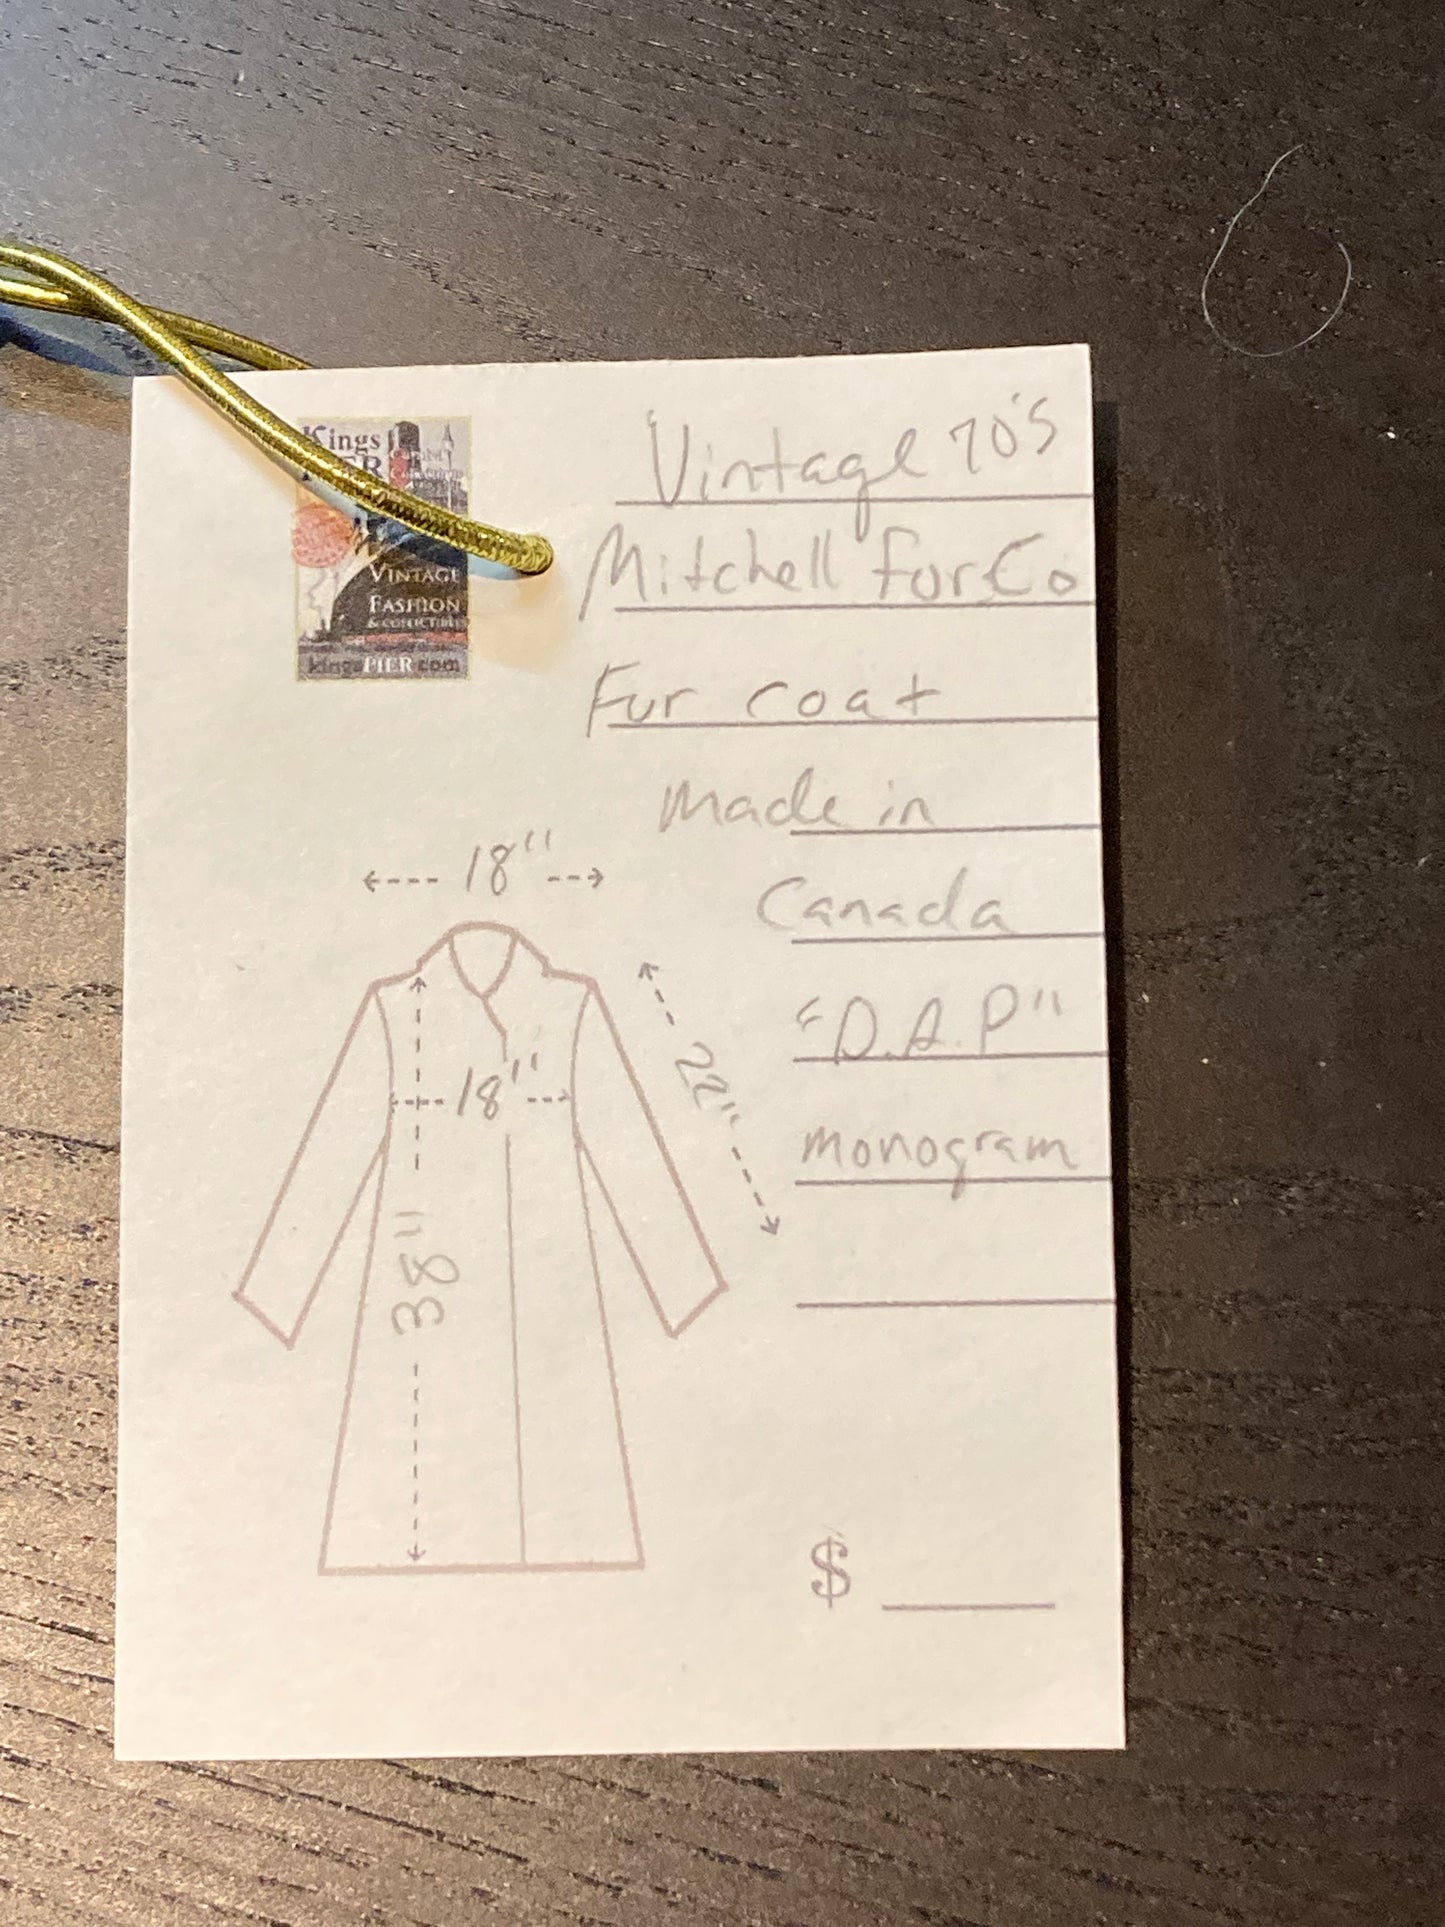 Kings
PIER
VINTAGE
FASHION
& COLLECTIBLES
kingsPIER.com
Vintage 70's
Mitchell Fur Co
Fur coat
made in
Canada
"D.A.P"
monogram
18"
18"
22"
38"
$